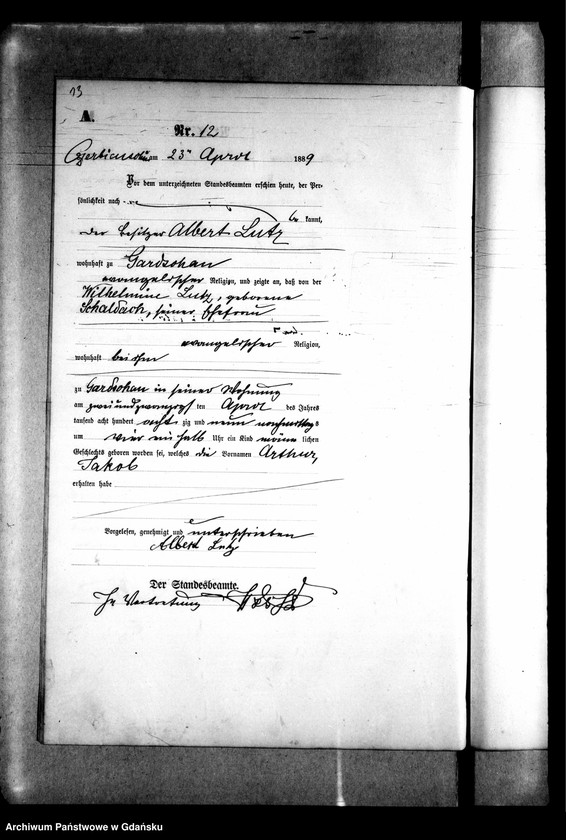 13
A.
Nr. 12
am 23ten April 1889
Vor dem unterzeichneten Standesbeamten erschien heute, der Per-
sönlichkeit nach
be kannt,
der Besitzer Albert Lutz
wohnhaft zu Gardschau
evangelischer Religion, und zeigte an, daß von der
Wilhelmine Lutz, geborene
Schaldach, seiner Ehefrau
evangelischer Religion,
wohnhaft bei ihm
zu Gardschau in seiner Wohnung
am zweiundzwanzigsten April des Jahres
tausend acht hundert acht zig und neun nachmittags
um vier ein halb Uhr ein Kind männ lichen
Geschlechts geboren worden sei, welches die Vornamen Arthur,
Jakob
erhalten habe
Vorgelesen, genehmigt und unterschrieben
Albert Lutz
Der Standesbeamte.
In Vertretung
Archiwum Państwowe w Gdańsku